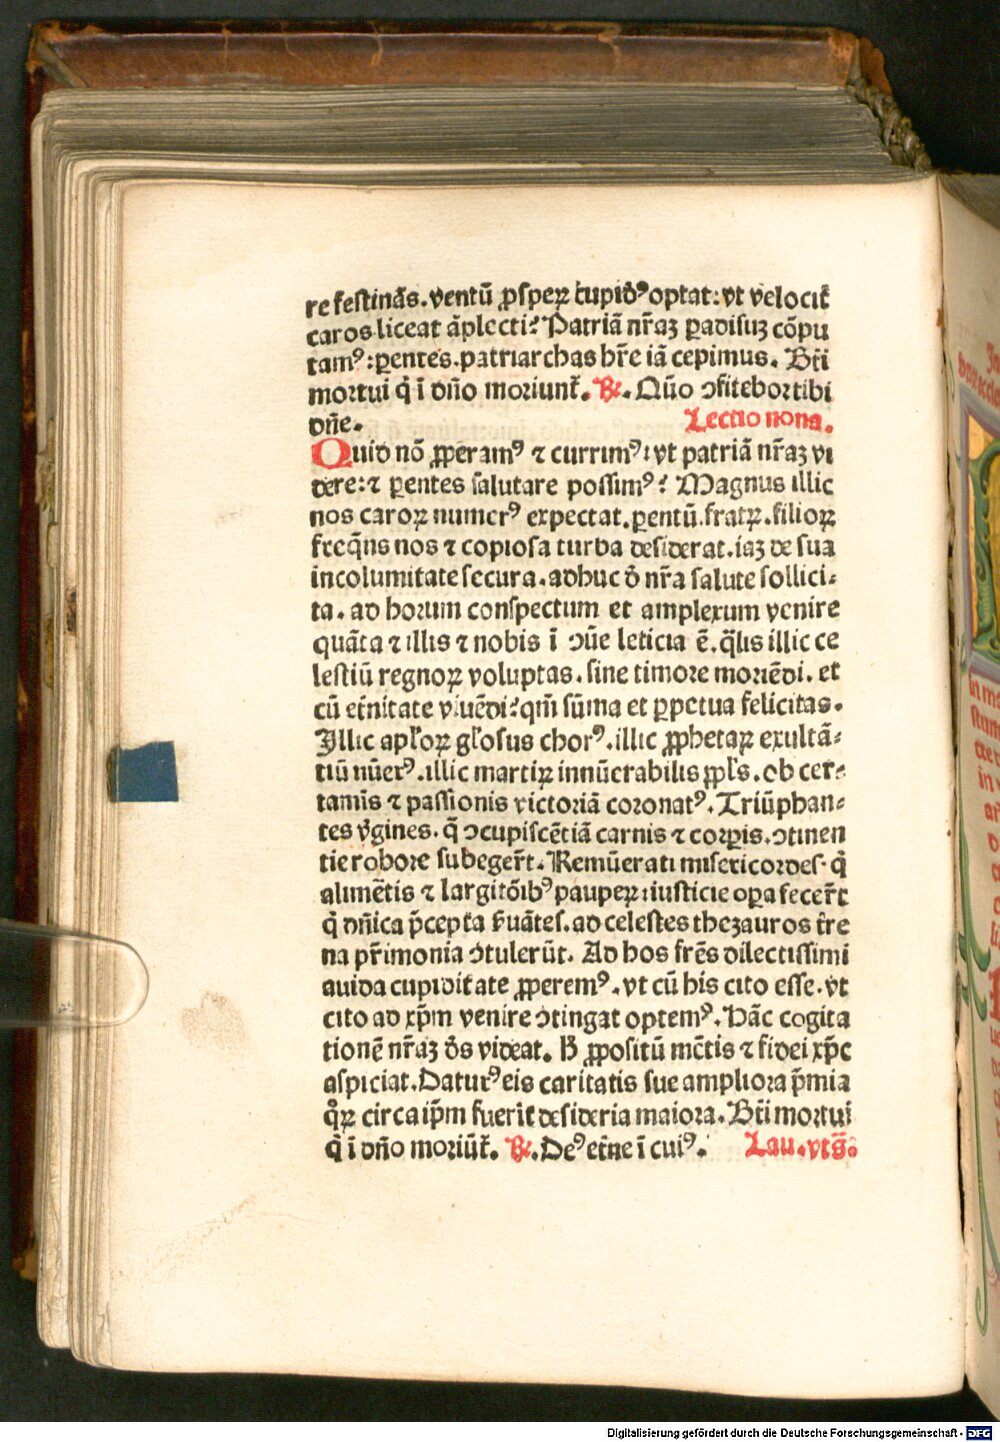 re festinãs. ventũ ꝓsperꝝ cupidꝰ optat: vt velocit̃
caros liceat ãplecti? Patriã nr̃aꝫ padisuꝫ cõpu
tamꝰ: ꝑentes. patriarchas hr̃e iã cepimus. Bt̃i
mortui q̃ ĩ dño moriunt̃. ℟. Quõ ↄfitebor tibi
dñe. Lectio nona.
Quid nõ ꝓꝑeramꝰ ⁊ currimꝰ: vt patriã nr̃aꝫ vi
dere: ⁊ ꝑentes salutare possimꝰ? Magnus illic
nos caroꝝ numerꝰ expectat. ꝑentũ. fratꝝ. filioꝝ
freq̃ns nos ⁊ copiosa turba desiderat. iaꝫ de sua
incolumitate secura. adhuc d̃ nr̃a salute sollici⸗
ta. ad horum conspectum et amplexum venire
quãta ⁊ illis ⁊ nobis ĩ ↄũe leticia ẽ. q̃lis illic ce
lestiũ regnoꝝ voluptas. sine timore moriẽdi. et
cũ et̃nitate viuẽdi? qm̃ sũma et ꝑpetua felicitas.
Illic apl̃oꝝ gl̃osus chorꝰ. illic ꝓphetaꝝ exultã⸗
tiũ nũerꝰ. illic martiꝝ innũerabilis ꝓpl̃s. ob cer⸗
tamĩs ⁊ passionis victoriã coronatꝰ. Triũphan⸗
tes v̊gines. q̃ ↄcupiscẽtiã carnis ⁊ corꝑis. ↄtinen
tie robore subeger̃t. Remũerati misericordes. q̃
alimẽtis ⁊ largitõibꝰ pauperꝝ: iusticie oꝑa fecer̃t
q̃ dñica p̃cepta s̃uãtes. ad celestes thezauros t̃re
na pr̃imonia ↄtulerũt. Ad hos fr̃es dilectissimi
auida cupiditate ꝓꝑeremꝰ. vt cũ his cito esse. vt
cito ad xp̃m venire ↄtingat optemꝰ. Hãc cogita
tionẽ nr̃aꝫ d̃s videat. H̊ ꝓpositũ mẽtis ⁊ fidei xp̃c
aspiciat. Daturꝰ eis caritatis sue ampliora p̃mia
qͦꝝ circa ip̃m fuerit desideria maiora. Bt̃i mortui
q̃ ĩ dño moriũt̃. ℟. Deꝰ et̃ne ĩ cuiꝰ. Lau. vts̃.
Digitalisierung gefördert durch die Deutsche Forschungsgemeinschaft - DFG